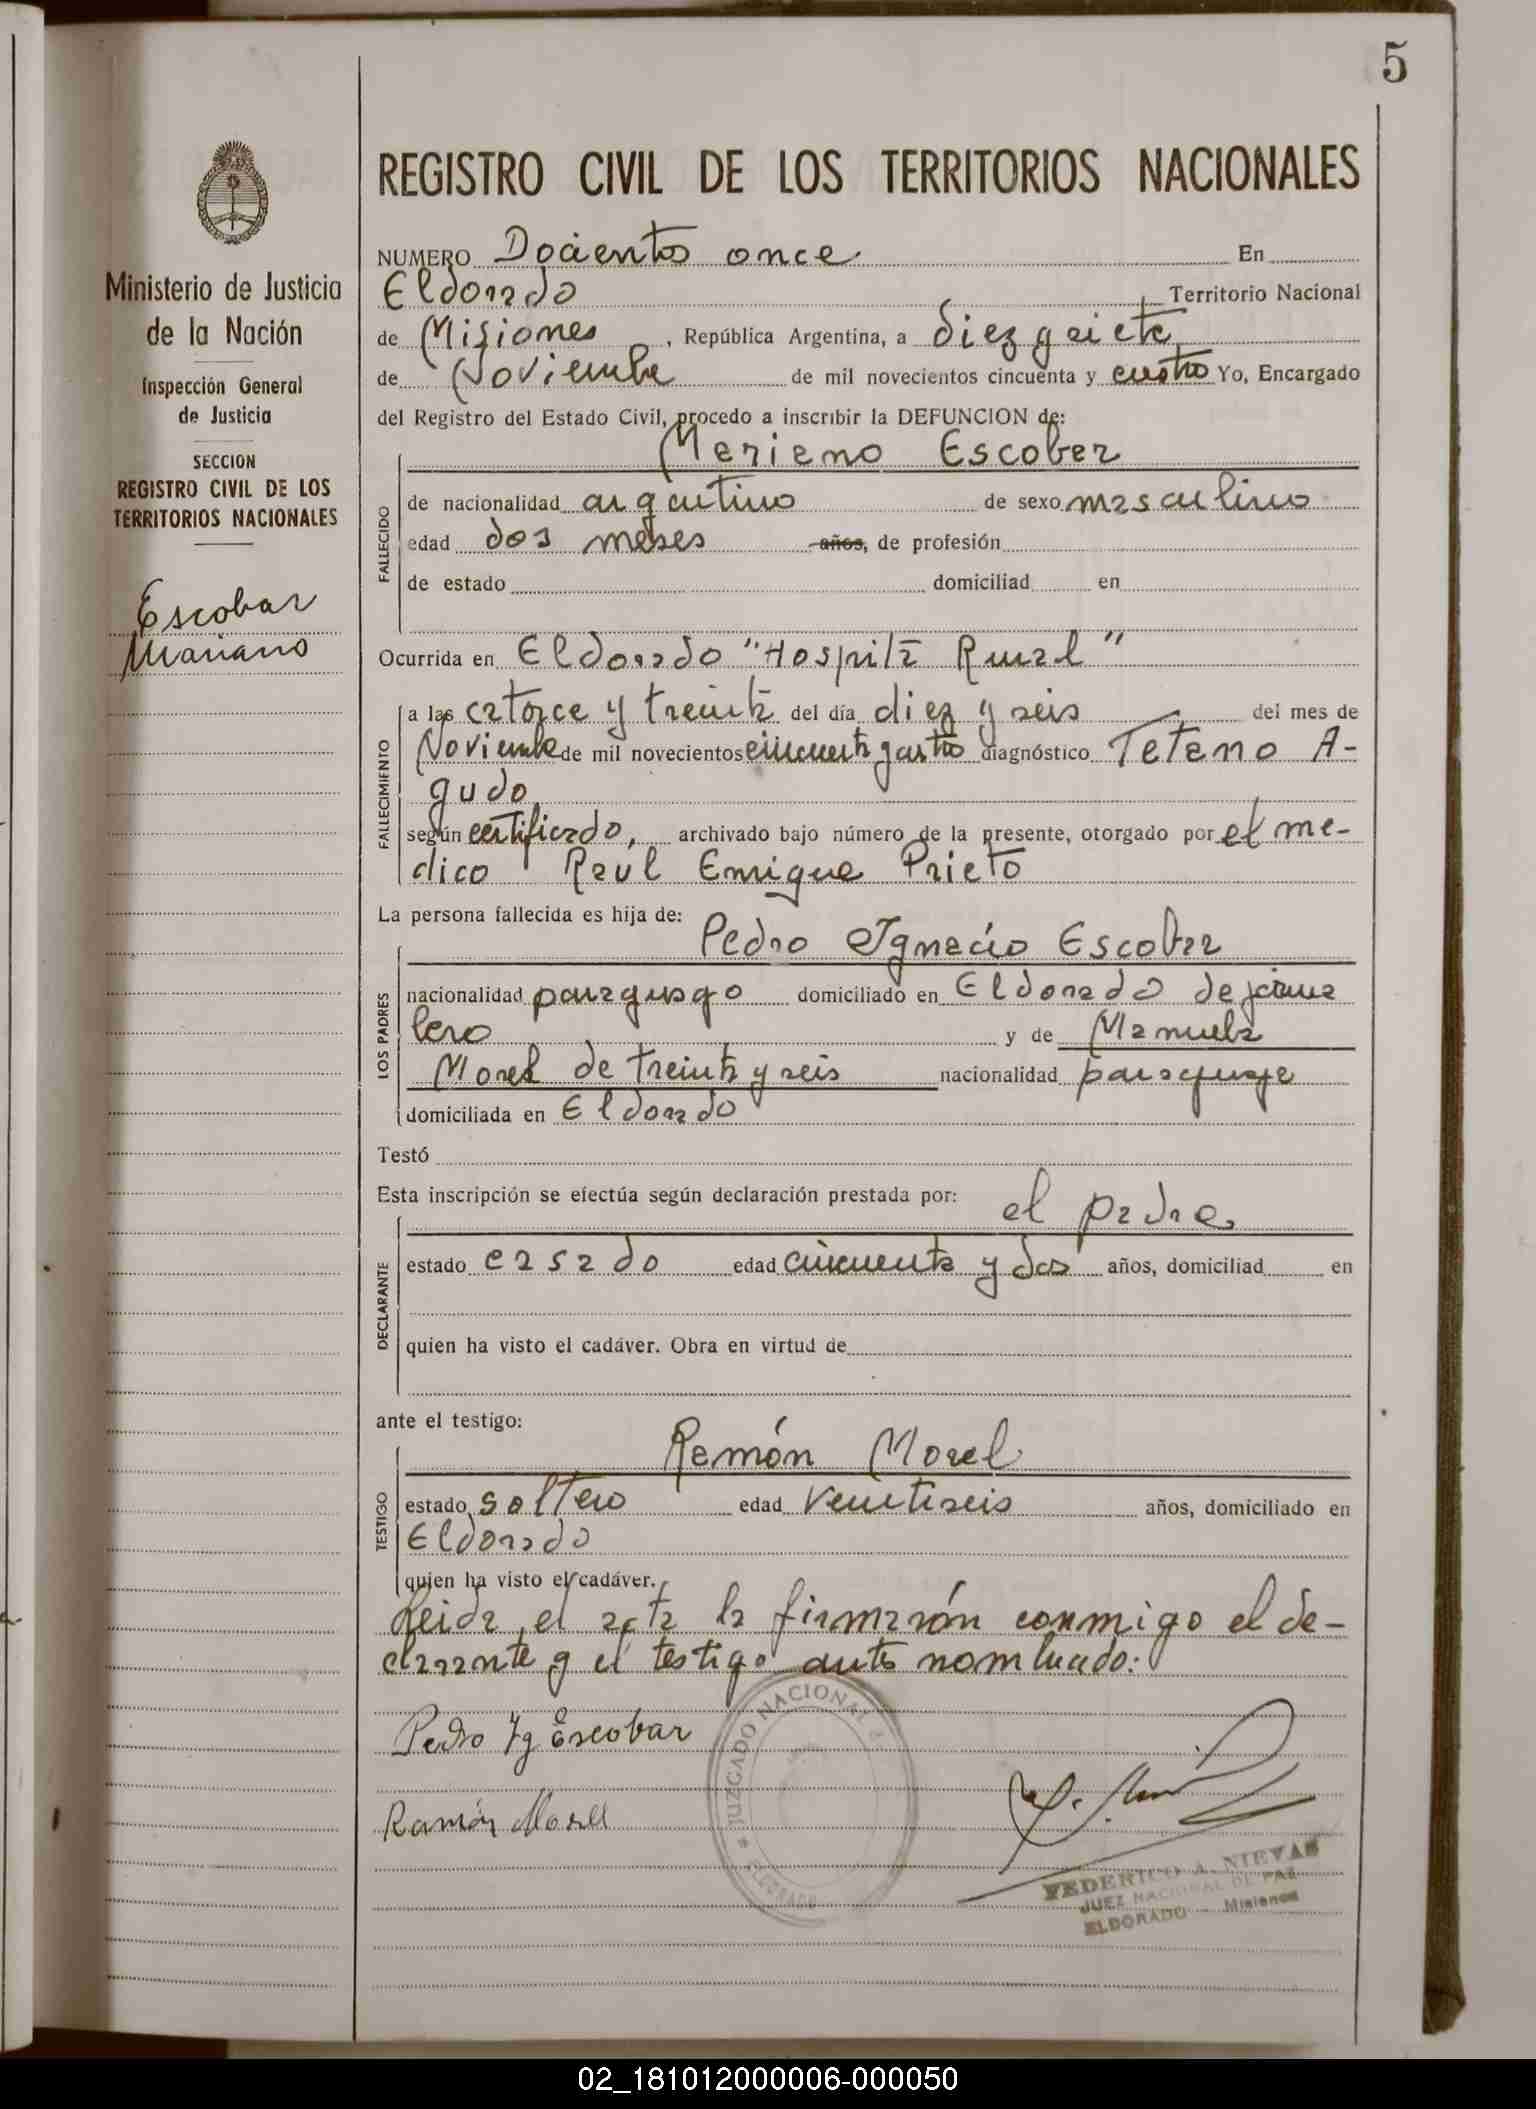 5
REGISTRO CIVIL DE LOS TERRITORIOS NACIONALES
Ministerio de Justicia
de la Nación
Inspección General
de Justicia
SECCION
REGISTRO CIVIL DE LOS
TERRITORIOS NACIONALES
Escobar
Mariano
NUMERO Dociento once En
Eldorado Territorio Nacional
de Misiones, República Argentina, a diez y siete
de Noviembre de mil novecientos cincuenta y cuatro Yo, Encargado
del Registro del Estado Civil, procedo a inscribir la DEFUNCION de:
Mariano Escobar
FALLECIDO
de nacionalidad argentino de sexo masculino
edad dos meses años, de profesión
de estado domiciliad en
Ocurrida en Eldorado "Hospital Rural"
FALLECIMIENTO
a las catorce y treinta del día diez y seis del mes de
Noviembre de mil novecientos cincuenta y cuatro diagnóstico Tetano A-
gudo
según certificado, archivado bajo número de la presente, otorgado por el me-
dico Raul Enrique Prieto
La persona fallecida es hija de:
Pedro Ignacio Escobar
LOS PADRES
nacionalidad paraguayo domiciliado en Eldorado de jorna
lero y de Manuela
Morel de treinta y seis nacionalidad paraguaya
domiciliada en Eldorado
Testó
Esta inscripción se efectúa según declaración prestada por:
el padre
DECLARANTE
estado casado edad cincuenta y dos años, domiciliad en
quien ha visto el cadáver. Obra en virtud de
ante el testigo:
Ramón Morel
TESTIGO
estado soltero edad veintiseis años, domiciliado en
Eldorado
quien ha visto el cadáver.
Leida el acta la firmarón conmigo el de-
clarante y el testigo antes nombrado:
Pedro Ig Escobar
Ramón Morel
JUZGADO NACIONAL
ELDORADO
FEDERICO A. NIEVAS
JUEZ NACIONAL DE PAZ
ELDORADO - Misiones
02_181012000006-000050